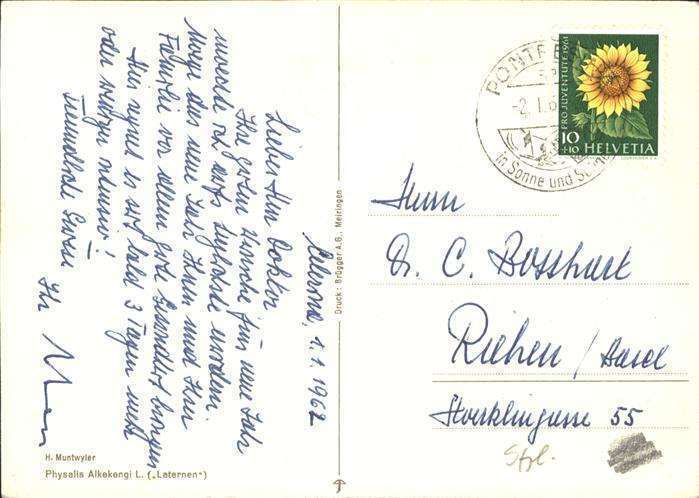 Celerina, 1.1.1962
Lieber Herr Doktor
Ihre guten Wünsche fürs neue Jahr
sollen aufs herzlichste
Möge das neue Jahr Ihnen und Ihrer
Familie vor allem gute Gesundheit bringen
Hier regnet es seit bald 3 Tagen mehr
oder weniger intensiv!
Freundliche Grüsse
Ihr
H. Muntwyler
Physalis Alkekengi L. („Laternen“)
Druck: Brügger A.G., Meiringen
PONTRE
-2.1.6
in Sonne und
PRO JUVENTUTE 1961
10
+10
HELVETIA
Herrn
Dr. C. Bosshart
Riehen / Basel
Stoerklingasse 55